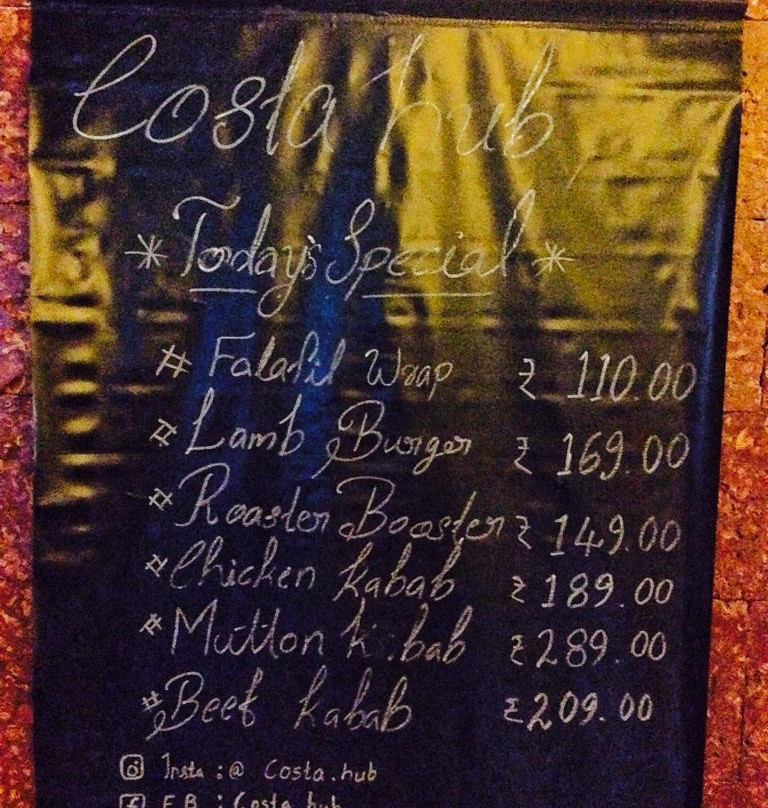 Costa hub
* Today's Special *
# Falafil Wrap ₹ 110.00
# Lamb Burger ₹ 169.00
# Roaster Booster ₹ 149.00
# Chicken kabab ₹ 189.00
# Mutton kabab ₹ 289.00
# Beef kabab ₹ 209.00
Insta : @ Costa.hub
F.B : Costa hub